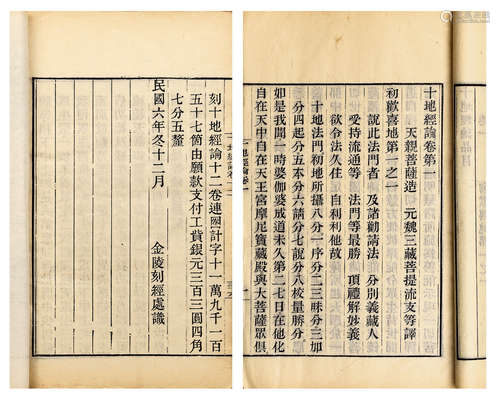 十地經論卷第一
天親菩薩造　元魏三藏菩提流支等譯
初歡喜地第一之一
說此法門者　及諸勸請法　分別義藏人
受持流通等　法門等最勝　頂禮解妙義
欲令法久住　自利利他故
十地法門初地所攝八分一序分二三昧分三加
分四起分五本分六請分七說分八校量勝分
如是我聞一時婆伽婆成道未久第二七日在他化
自在天中自在天王宮摩尼寶藏殿與大菩薩眾俱
刻十地經論十二卷連圈計字十一萬九千一百
五十七箇由願款支付工貲銀元三百三圓四角
七分五釐
民國六年冬十二月
金陵刻經處識